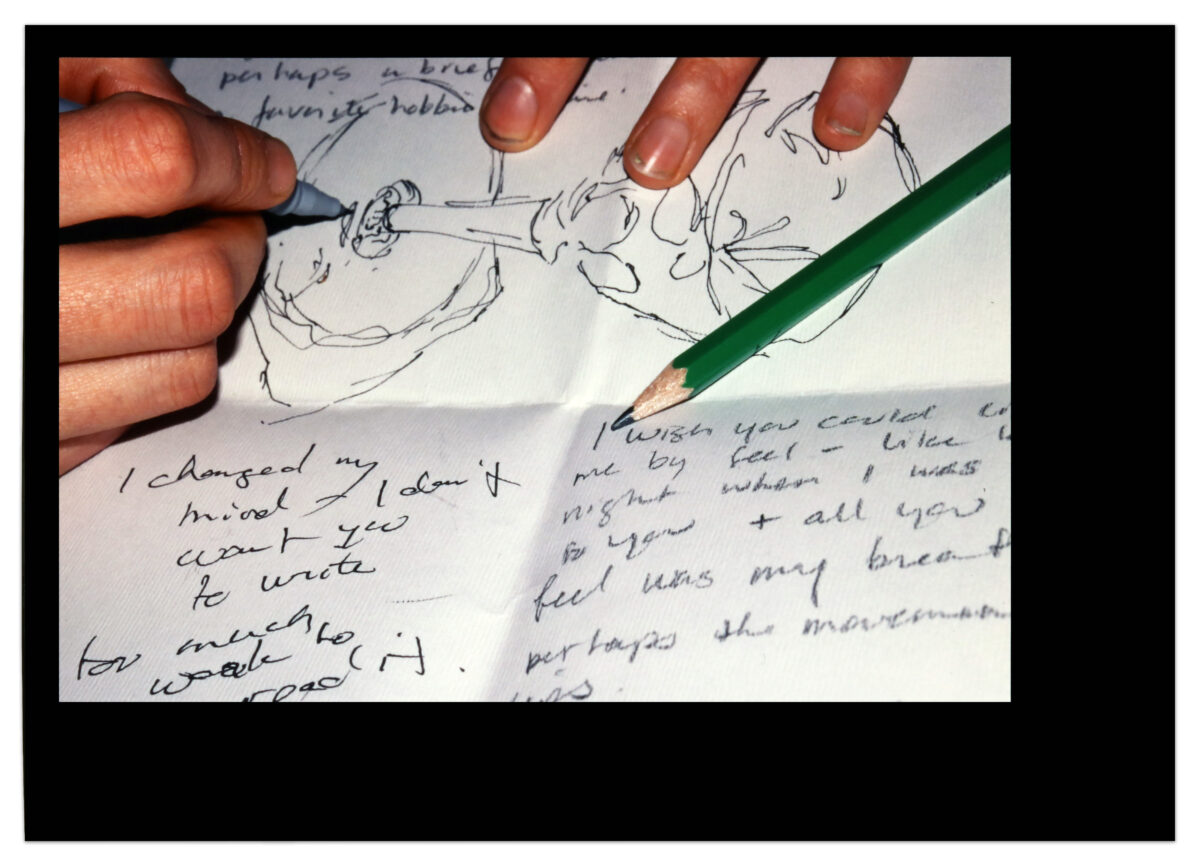 perhaps a brief
favorite hobbie
I changed my
mind – I don't
want you
to write
too much
work to
read (it).
I wish you could
me by feel – like
night when I was
to you + all you
feel was my breath
perhaps the movement